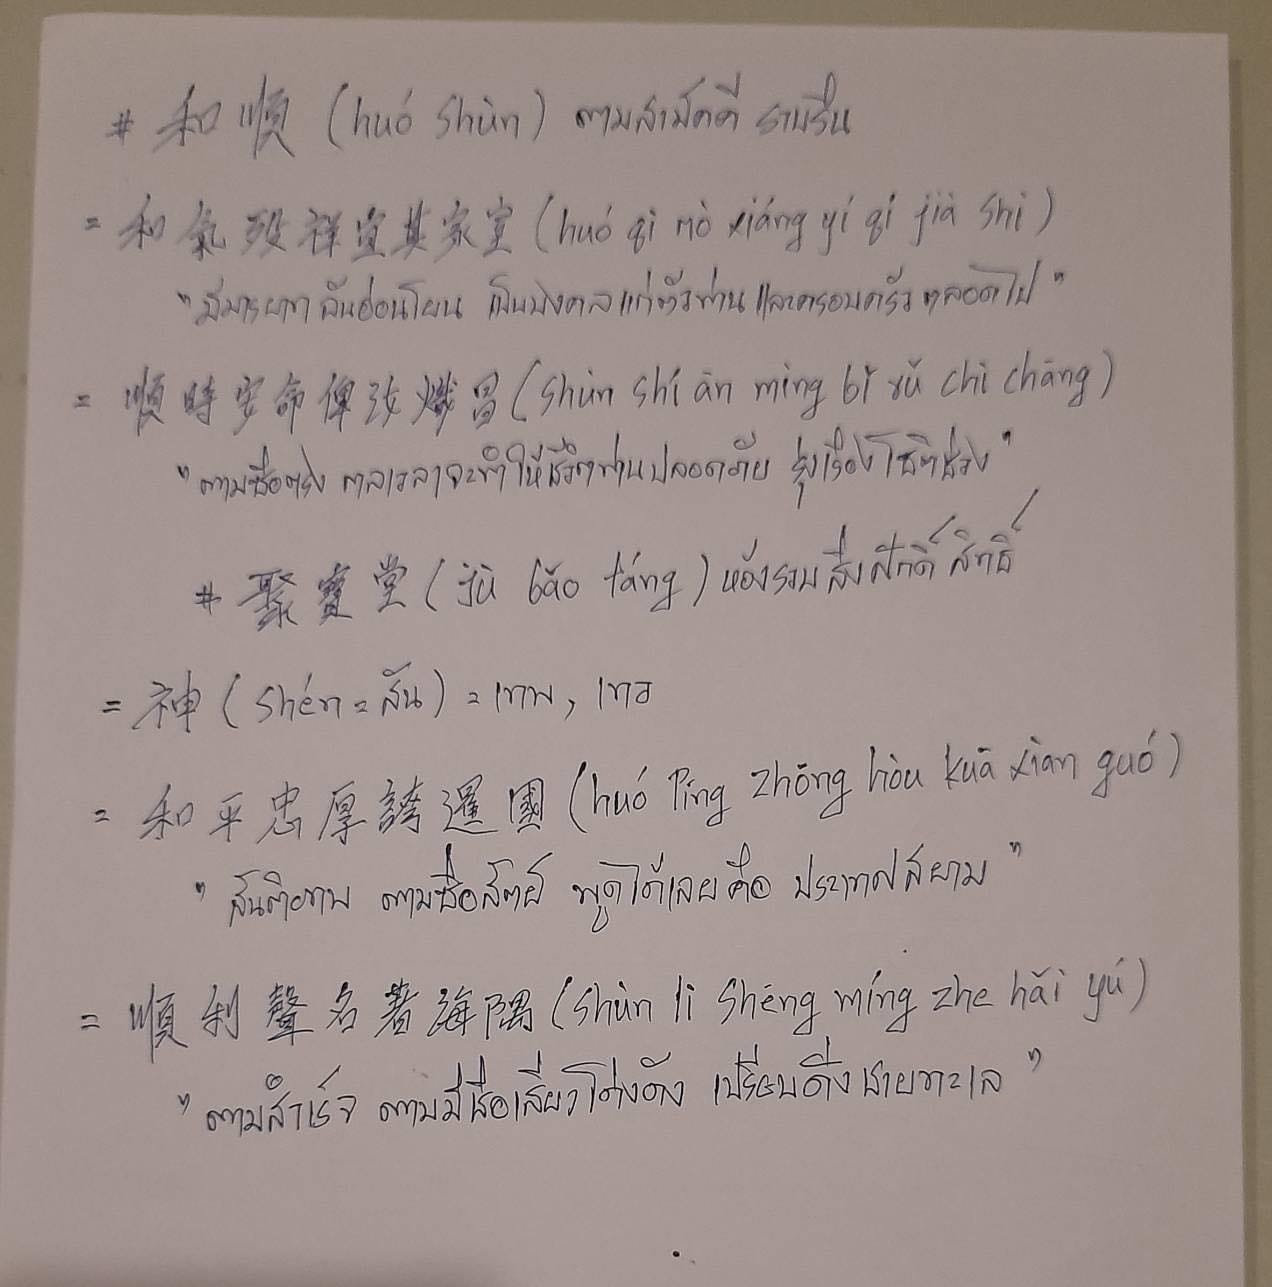 # 和順 (huó shùn) ความสามัคคี ราบรื่น
= 和氣致祥宜其家室 (huó qì mò xiáng yí qí jià shì)
"มีมารยาทอันอ่อนโยน เป็นมงคลแก่ตัวท่านและครอบครัวตลอดไป"
= 順時安命俾汝熾昌 (shùn shí ān mìng bǐ rǔ chì chāng)
"ความซื่อตรง กาลเวลาจะทำให้ชีวิตท่านปลอดภัย รุ่งเรืองโชติช่วง"
# 聚寶堂 (jù bǎo táng) ห้องรวมสิ่งศักดิ์สิทธิ์
= 神 (shén = สัน) = เทพ, เทว
= 和平忠厚誇暹國 (huó píng zhōng hòu kuā xiān guó)
"สันติภาพ ความซื่อสัตย์ พูดได้เลยคือ ประเทศสยาม"
= 順利聲名著海隅 (shùn lì shēng míng zhe hǎi yú)
"ความสำเร็จ ความมีชื่อเสียงโด่งดัง เปรียบดั่งชายทะเล"